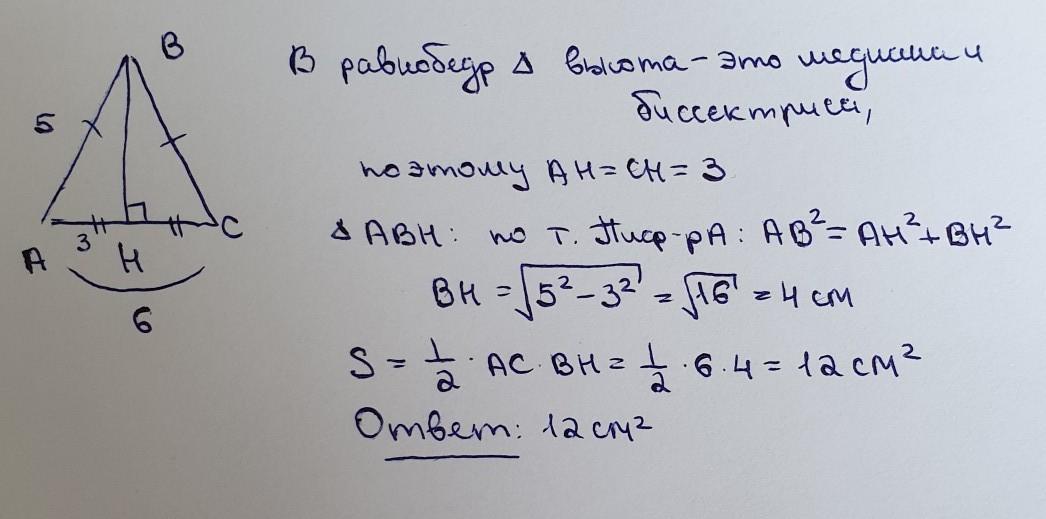 B
5
A
3
H
C
6
В равнобедр Δ высота - это медиана и
биссектриса,
поэтому AH = CH = 3
Δ ABH: по т. Пиф-рА: AB² = AH² + BH²
BH = √(5² - 3²) = √16 = 4 см
S = 1/2 · AC · BH = 1/2 · 6 · 4 = 12 см²
Ответ: 12 см²